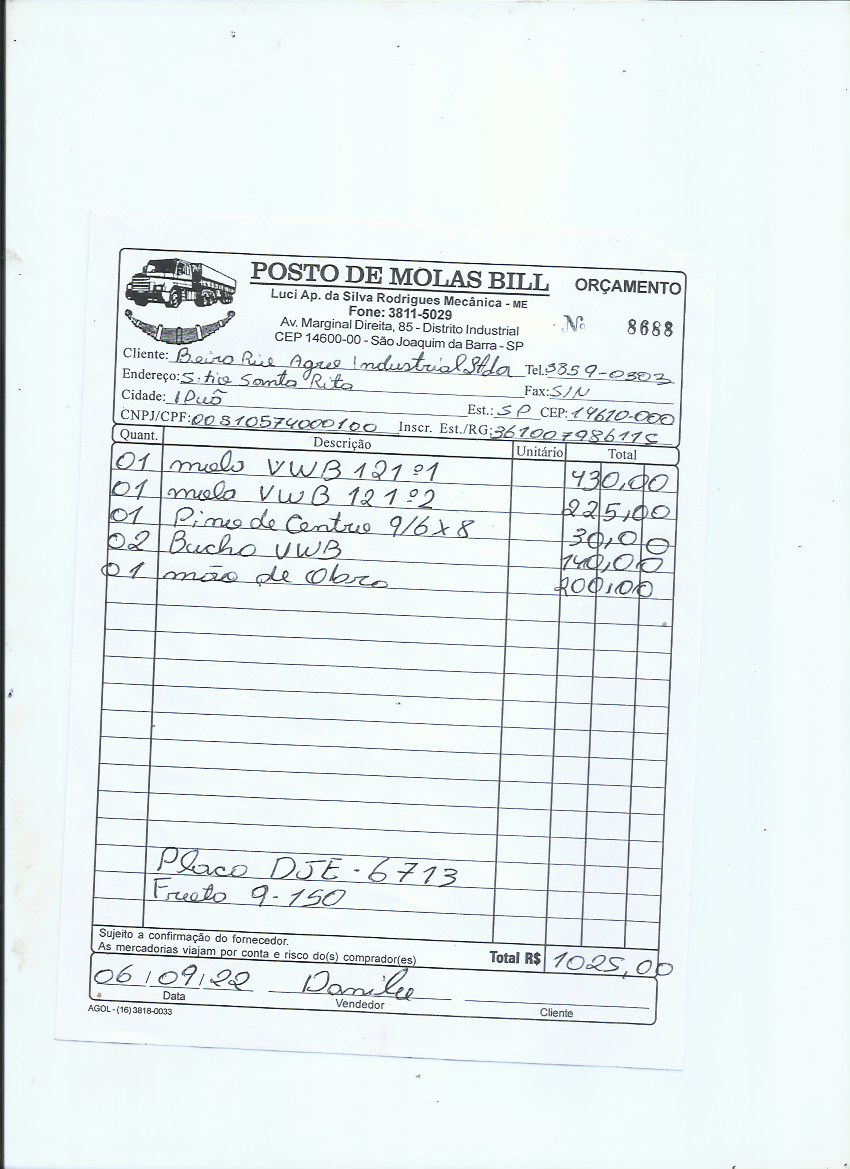 POSTO DE MOLAS BILL
ORÇAMENTO
Luci Ap. da Silva Rodrigues Mecânica - ME
Fone: 3811-5029
Av. Marginal Direita, 85 - Distrito Industrial
CEP 14600-00 - São Joaquim da Barra - SP
Nº 8688
Cliente: Beira Rio Agro Industrial Ltda Tel. 3859-0303
Endereço: Sitio Santa Rita Fax: S/N
Cidade: IPuã Est.: SP CEP: 14610-000
CNPJ/CPF: 00310574000100 Inscr. Est./RG: 361007986115
Quant. Descrição Unitário Total
01 mola VWB 121 º1 430,00
01 mola VWB 121 º2 225,00
01 Pino de Centro 9/6 x 8 30,00
02 Bucha VWB 140,00
01 mão de Obra 200,00
Placa DJE-6713
Frota 9-150
Sujeito a confirmação do fornecedor.
As mercadorias viajam por conta e risco do(s) comprador(es)
Total R$ 1025,00
06/09/22 Danilo
Data Vendedor Cliente
AGOL - (16) 3818-0033